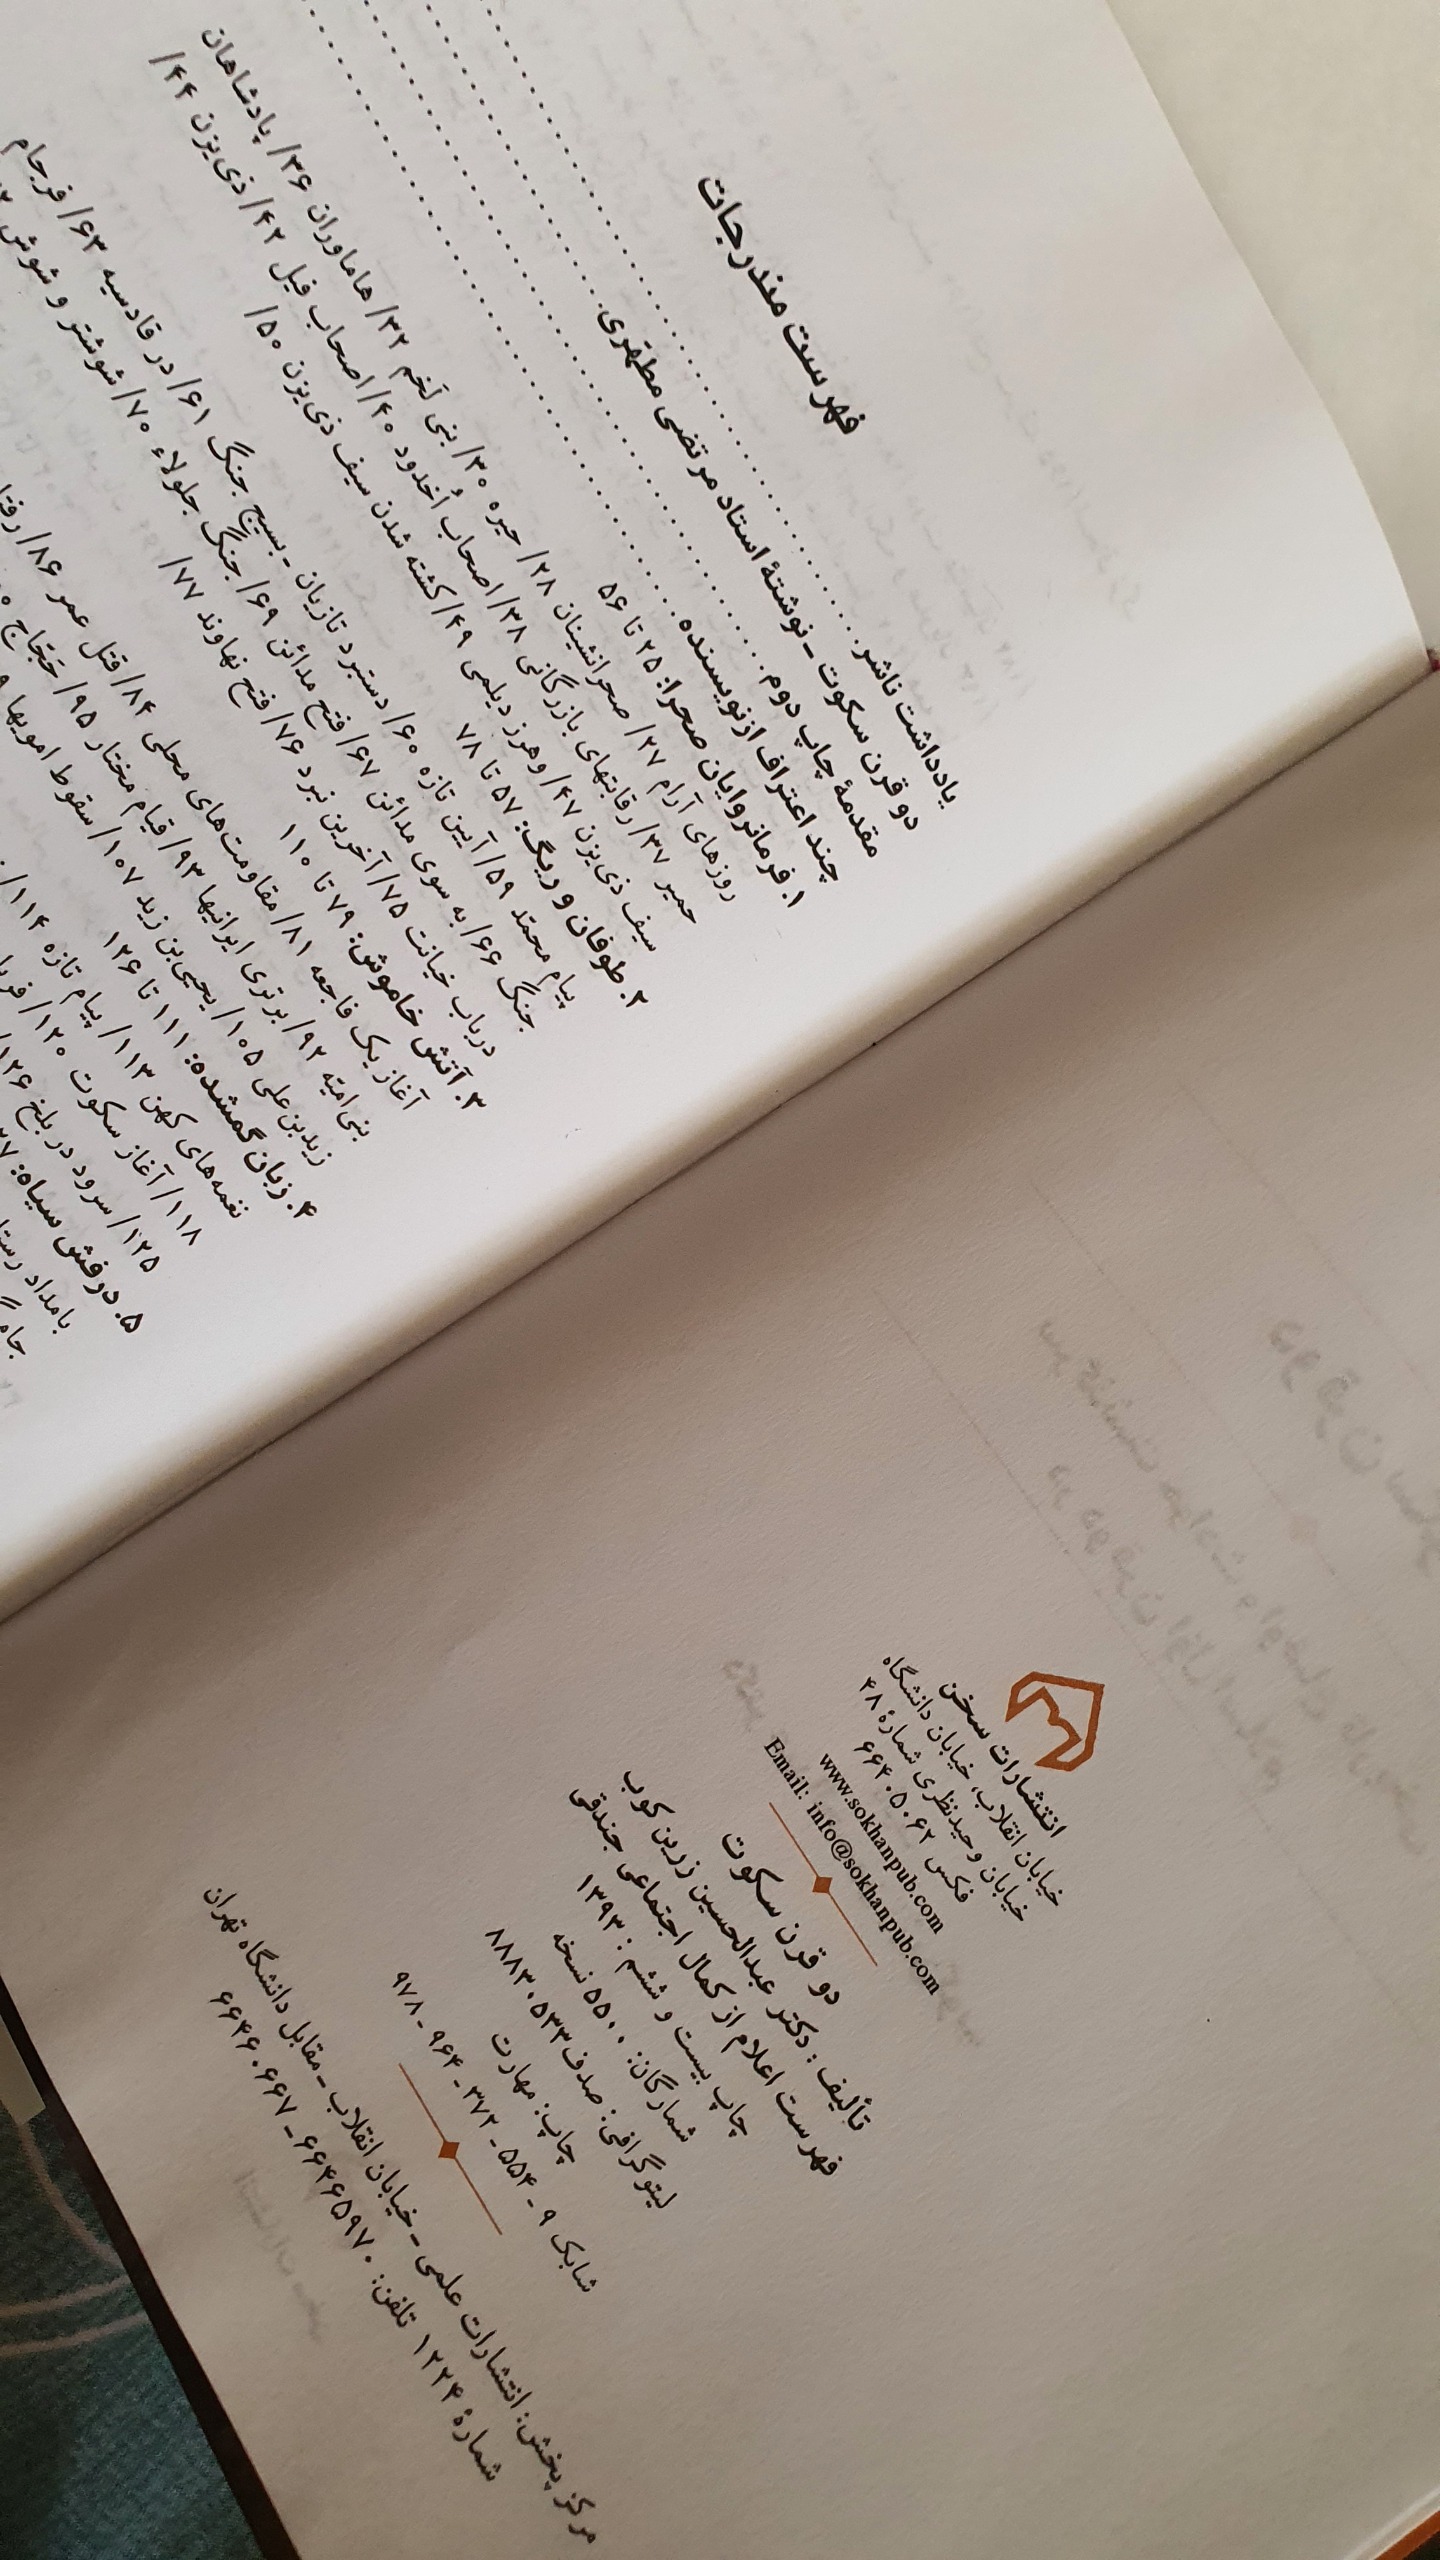 انتشارات سخن
خیابان انقلاب، خیابان دانشگاه
خیابان وحیدنظری شمارهٔ ۴۸
فکس ۶۶۴۰۵۰۶۲
www.sokhanpub.com
Email: info@sokhanpub.com
دو قرن سکوت
تألیف: دکتر عبدالحسین زرین کوب
فهرست اعلام از کمال اجتماعی جندقی
چاپ بیست و ششم: ۱۳۹۳
شمارگان: ۵۵۰۰ نسخه
لیتوگرافی: صدف ۸۸۸۳۰۵۳۳
چاپ: مهارت
شابک ۹ - ۵۵۴ - ۳۷۲ - ۹۶۴ - ۹۷۸
مرکز پخش: انتشارات علمی - خیابان انقلاب - مقابل دانشگاه تهران
شمارهٔ ۱۲۲۴ تلفن: ۶۶۴۶۵۹۷۰ - ۶۶۴۶۰۶۶۷
فهرست مندرجات
یادداشت ناشر
دو قرن سکوت - نوشتهٔ استاد مرتضی مطهّری
مقدمهٔ چاپ دوم
چند اعتراف از نویسنده
۱. فرمانروایان صحرا: ۲۵ تا ۵۶
روزهای آرام ۲۷/ صحرانشینان ۲۸/ حیره ۳۰/ بنی لَخم ۳۲/ هاماوران ۳۶/ پادشاهان
حمیر ۳۷/ رقابتهای بازرگانی ۳۸/ اصحاب اُخدود ۴۰/ اصحاب فیل ۴۲/ ذی‌یزن ۴۴/
سیف ذی‌یزن ۴۷/ وهرز دیلمی ۴۹/ کشته شدن سیف ذی‌یزن ۵۰/
۲. طوفان و ریگ: ۵۷ تا ۷۸
پیام محمّد ۵۹/ آیین تازه ۶۰/ دستبرد تازیان - بسیج جنگ ۶۱/ در قادسیه ۶۳/ فرجام
جنگ ۶۶/ به سوی مدائن ۶۷/ فتح مدائن ۶۹/ جنگ جلولاء ۷۰/ شوشتر و شوش
درباب خیانت ۷۵/ آخرین نبرد ۷۶/ فتح نهاوند ۷۷/
۳. آتش خاموش: ۷۹ تا ۱۱۰
آغاز یک فاجعه ۸۱/ مقاومت‌های محلی ۸۴/ قتل عمر ۸۶/
بنی امیّه ۹۲/ برتری ایرانیها ۹۳/ قیام مختار ۹۵/ حَجّاج
زیدبن‌علی ۱۰۵/ یحیی‌بن زید ۱۰۷/ سقوط امویها
۴. زبان گمشده: ۱۱۱ تا ۱۲۶
نغمه‌های کهن ۱۱۳/ پیام تازه ۱۱۴/
۱۱۸/ آغاز سکوت ۱۲۰/
۱۲۵/ سرود در بلخ ۱۲۶/
۵. درفش سیاه:
بامداد